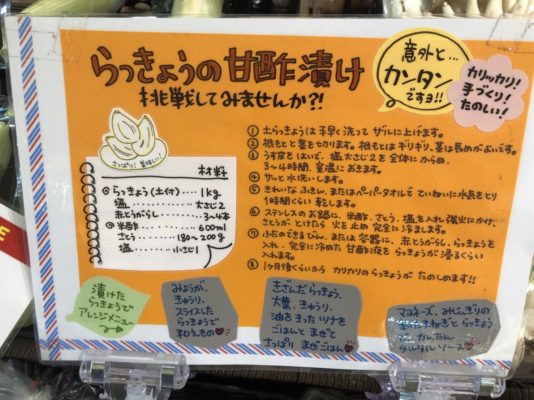 らっきょうの甘酢漬け
挑戦してみませんか?!
意外と…
カンタン
ですヨ!!
カリッカリ!
手づくり!
たのしい!
さっぱり!美味しい!
材料
◎らっきょう(土付)‥‥1kg
塩‥‥‥大さじ2
赤とうがらし‥‥3〜4本
◎米酢‥‥‥600ml
さとう‥‥180〜200g
塩‥‥‥小さじ1
① 土らっきょうは手早く洗ってザルに上げます。
② 根もとと茎をセカります。根もとはギリギリ、茎は長めがよいです。
③ うす皮をはいで、塩大さじ2を全体にからめ、
3〜4時間、室温におきます。
④ サッと水洗いします。
⑤ きれいなふきん、またはペーパータオルでていねいに水気をとり
1時間くらい乾します。
⑥ ステンレスのお鍋に、米酢、さとう、塩を入れ強火にかけ、
さとうがとけたら火を止め完全に冷まします。
⑦ ふたのできるびん、または容器に、赤とうがらし、らっきょうを
入れ、完全に冷めた甘酢液をらっきょうが浸るくらい
入れます。
⑧ 1ヶ月後くらいからカリカリのらっきょうがたのしめます!!
漬けた
らっきょうで
アレンジメニュー
みょうが、
きゅうり、
スライスした
らっきょうで
和えもの
きざんだらっきょう、
大葉、きゅうり、
油をきったツナを
ごはんとまぜて
さっぱりまぜごはん
マヨネーズ、みじんぎりの
たまねぎとらっきょう
かんたん
タルタルソース